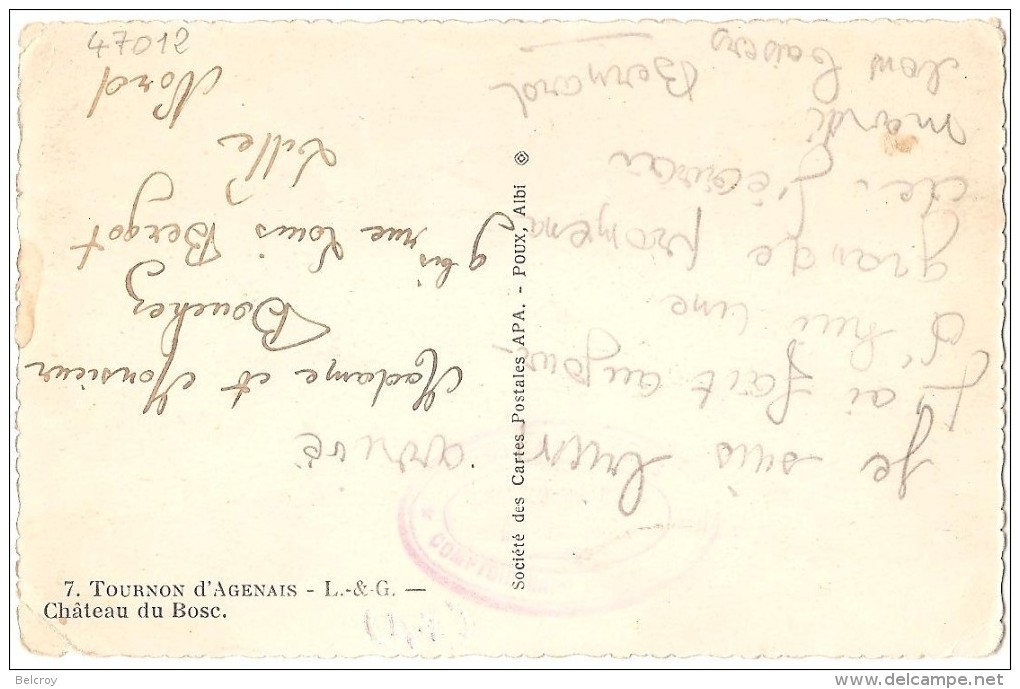 47012
Je suis bien arrivé
J'ai fait aujour
d'hui une
grande promena
de. J'écrirai
mardi
bons baisers
Bernard
Madame et Monsieur
Bouchez
9 bis rue Louis Bergot
Lille
Nord
Société des Cartes Postales APA. - POUX, Albi ©
COMPTOIR
7. TOURNON D'AGENAIS - L.-&-G. —
Château du Bosc.
Belcroy
delcampe.net